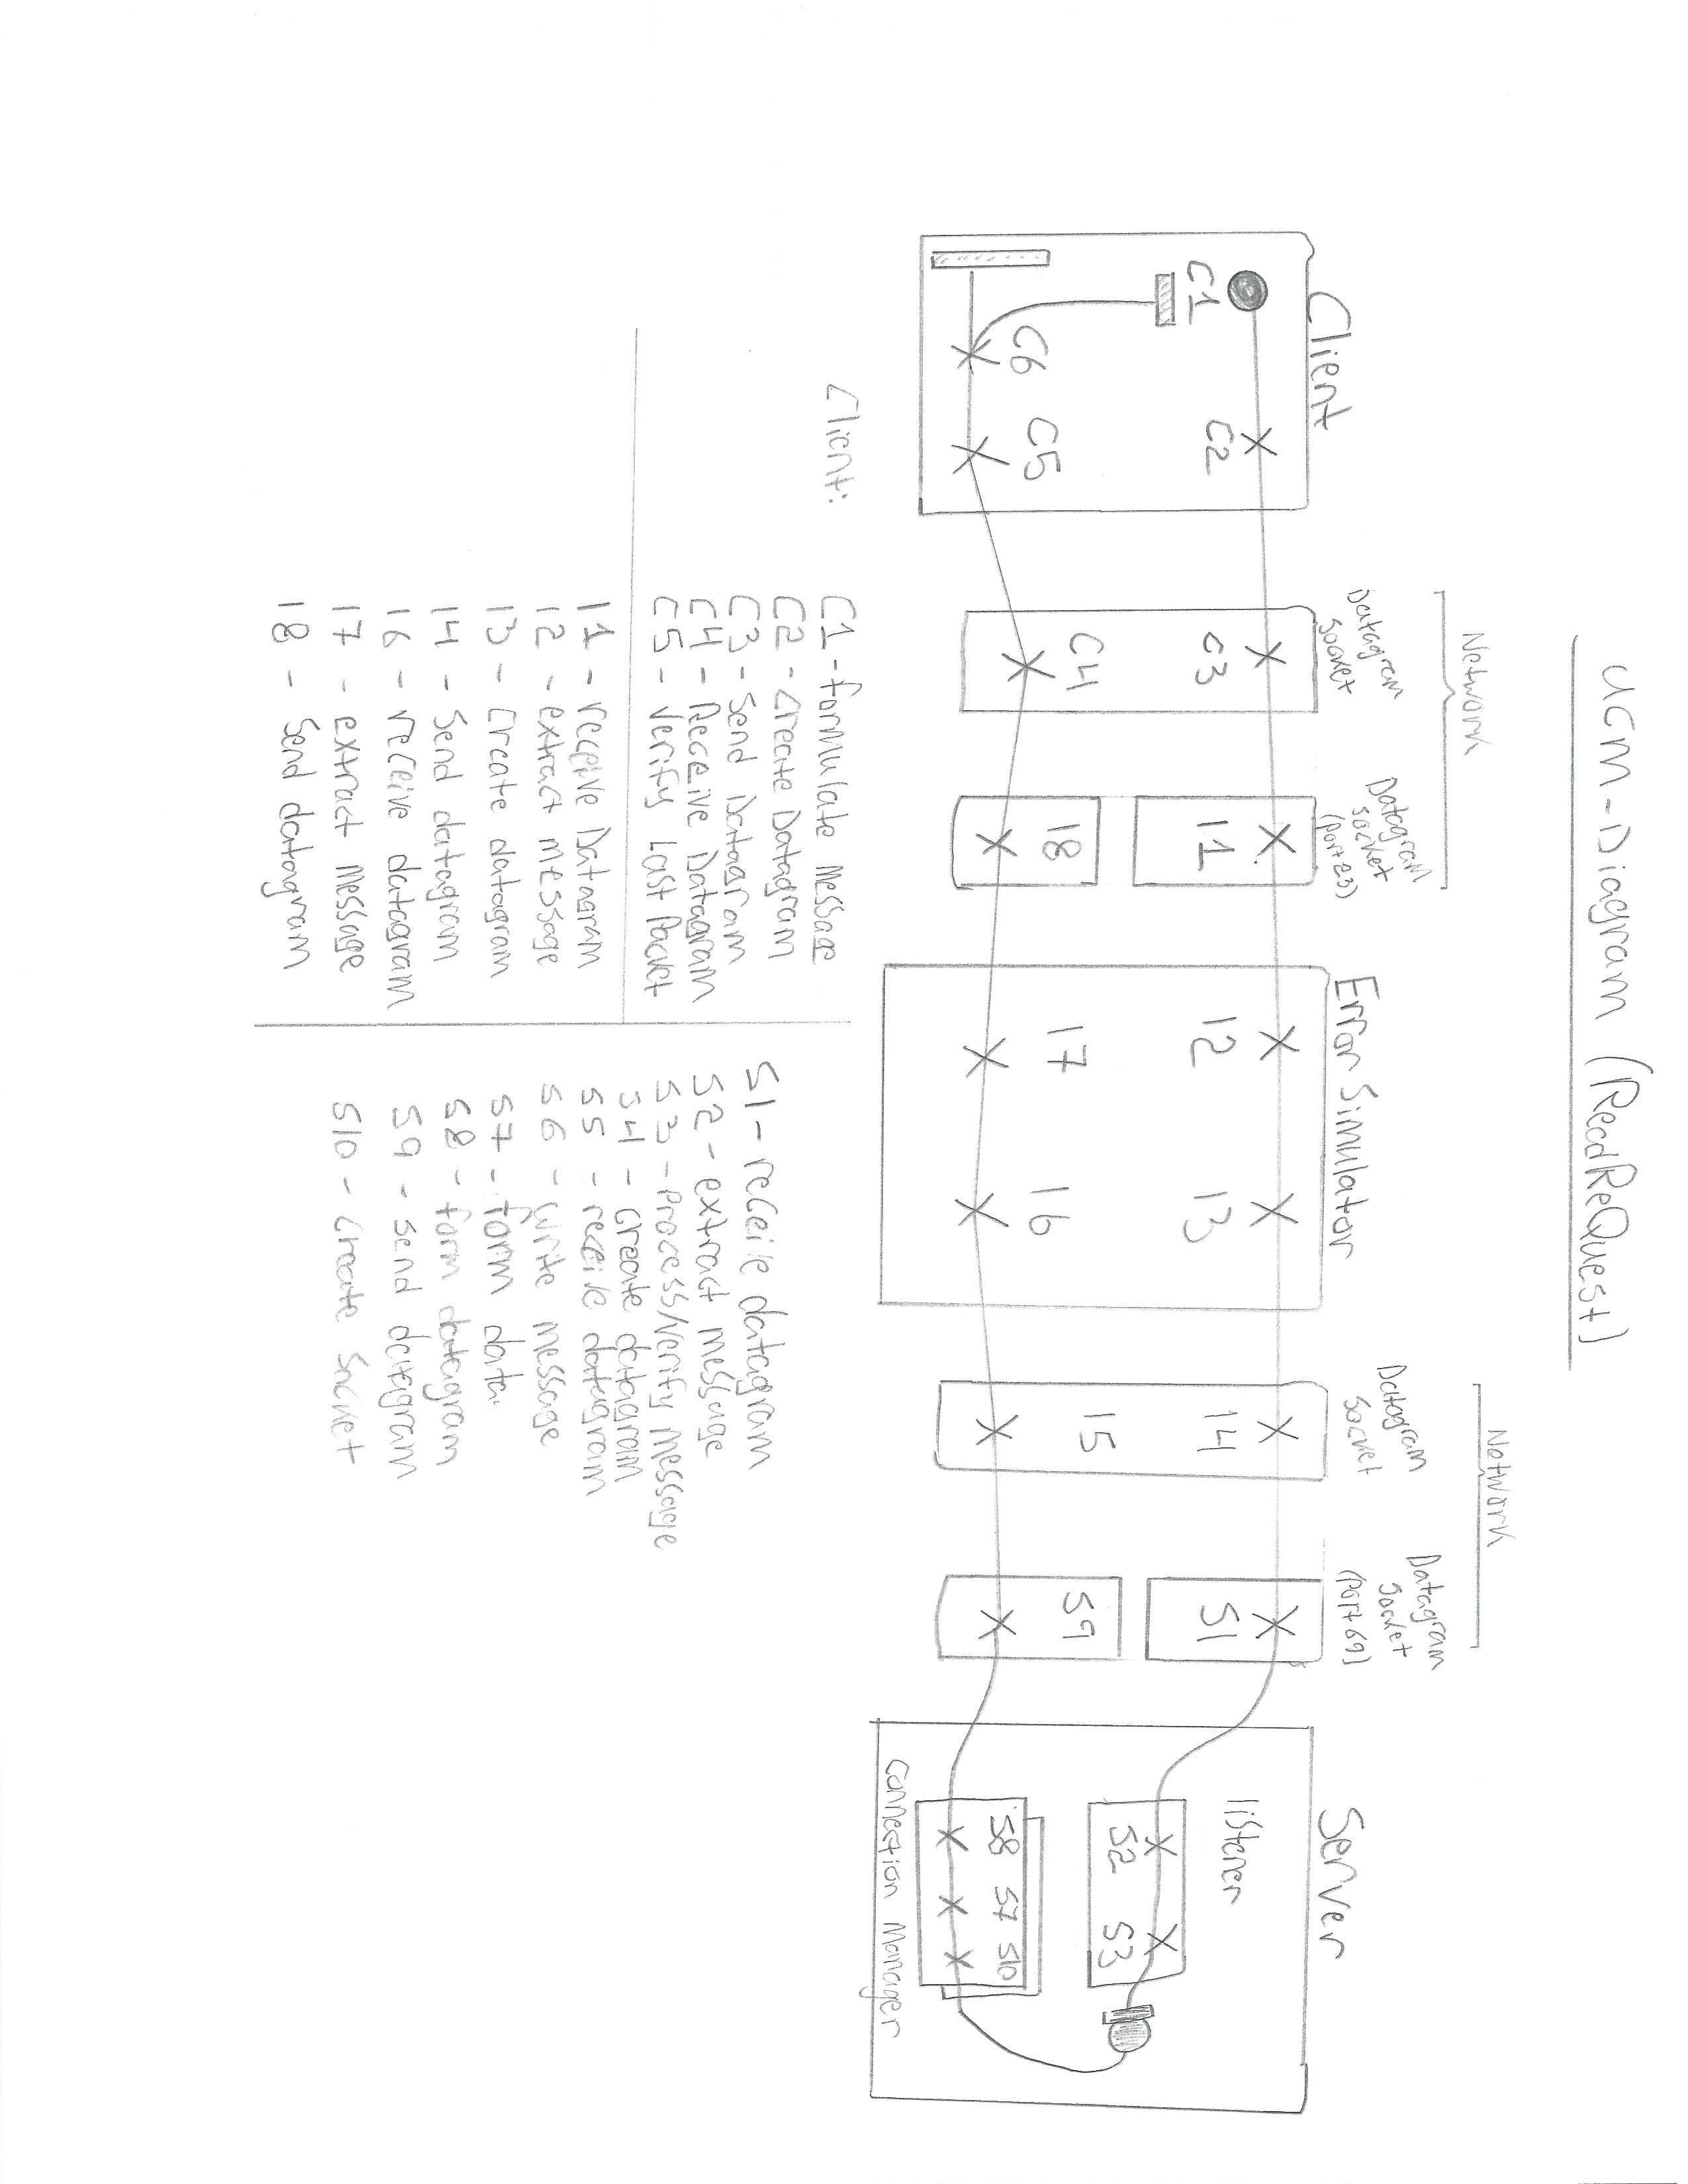 UCM-Diagram (ReadReQuest)
Network
Network
Datagram
Socket
Datagram
Socket
(Port 23)
Datagram
Socket
Datagram
Socket
(Port 69)
Client
Error Simulator
Server
C1
C2
C3
I1
I2
I3
I4
S1
listener
S2
S3
C6
C5
C4
I8
I7
I6
I5
S9
S8 S7 S10
Connection Manager
Client:
C1 - formulate message
C2 - Create Datagram
C3 - Send Datagram
C4 - Receive Datagram
C5 - Verify Last Packet
I1 - receive Datagram
I2 - extract message
I3 - Create datagram
I4 - Send datagram
I6 - receive datagram
I7 - extract message
I8 - Send datagram
S1 - receive datagram
S2 - extract message
S3 - Process/Verify message
S4 - create datagram
S5 - receive datagram
S6 - write message
S7 - form data.
S8 - form datagram
S9 - send datagram
S10 - Create Socket